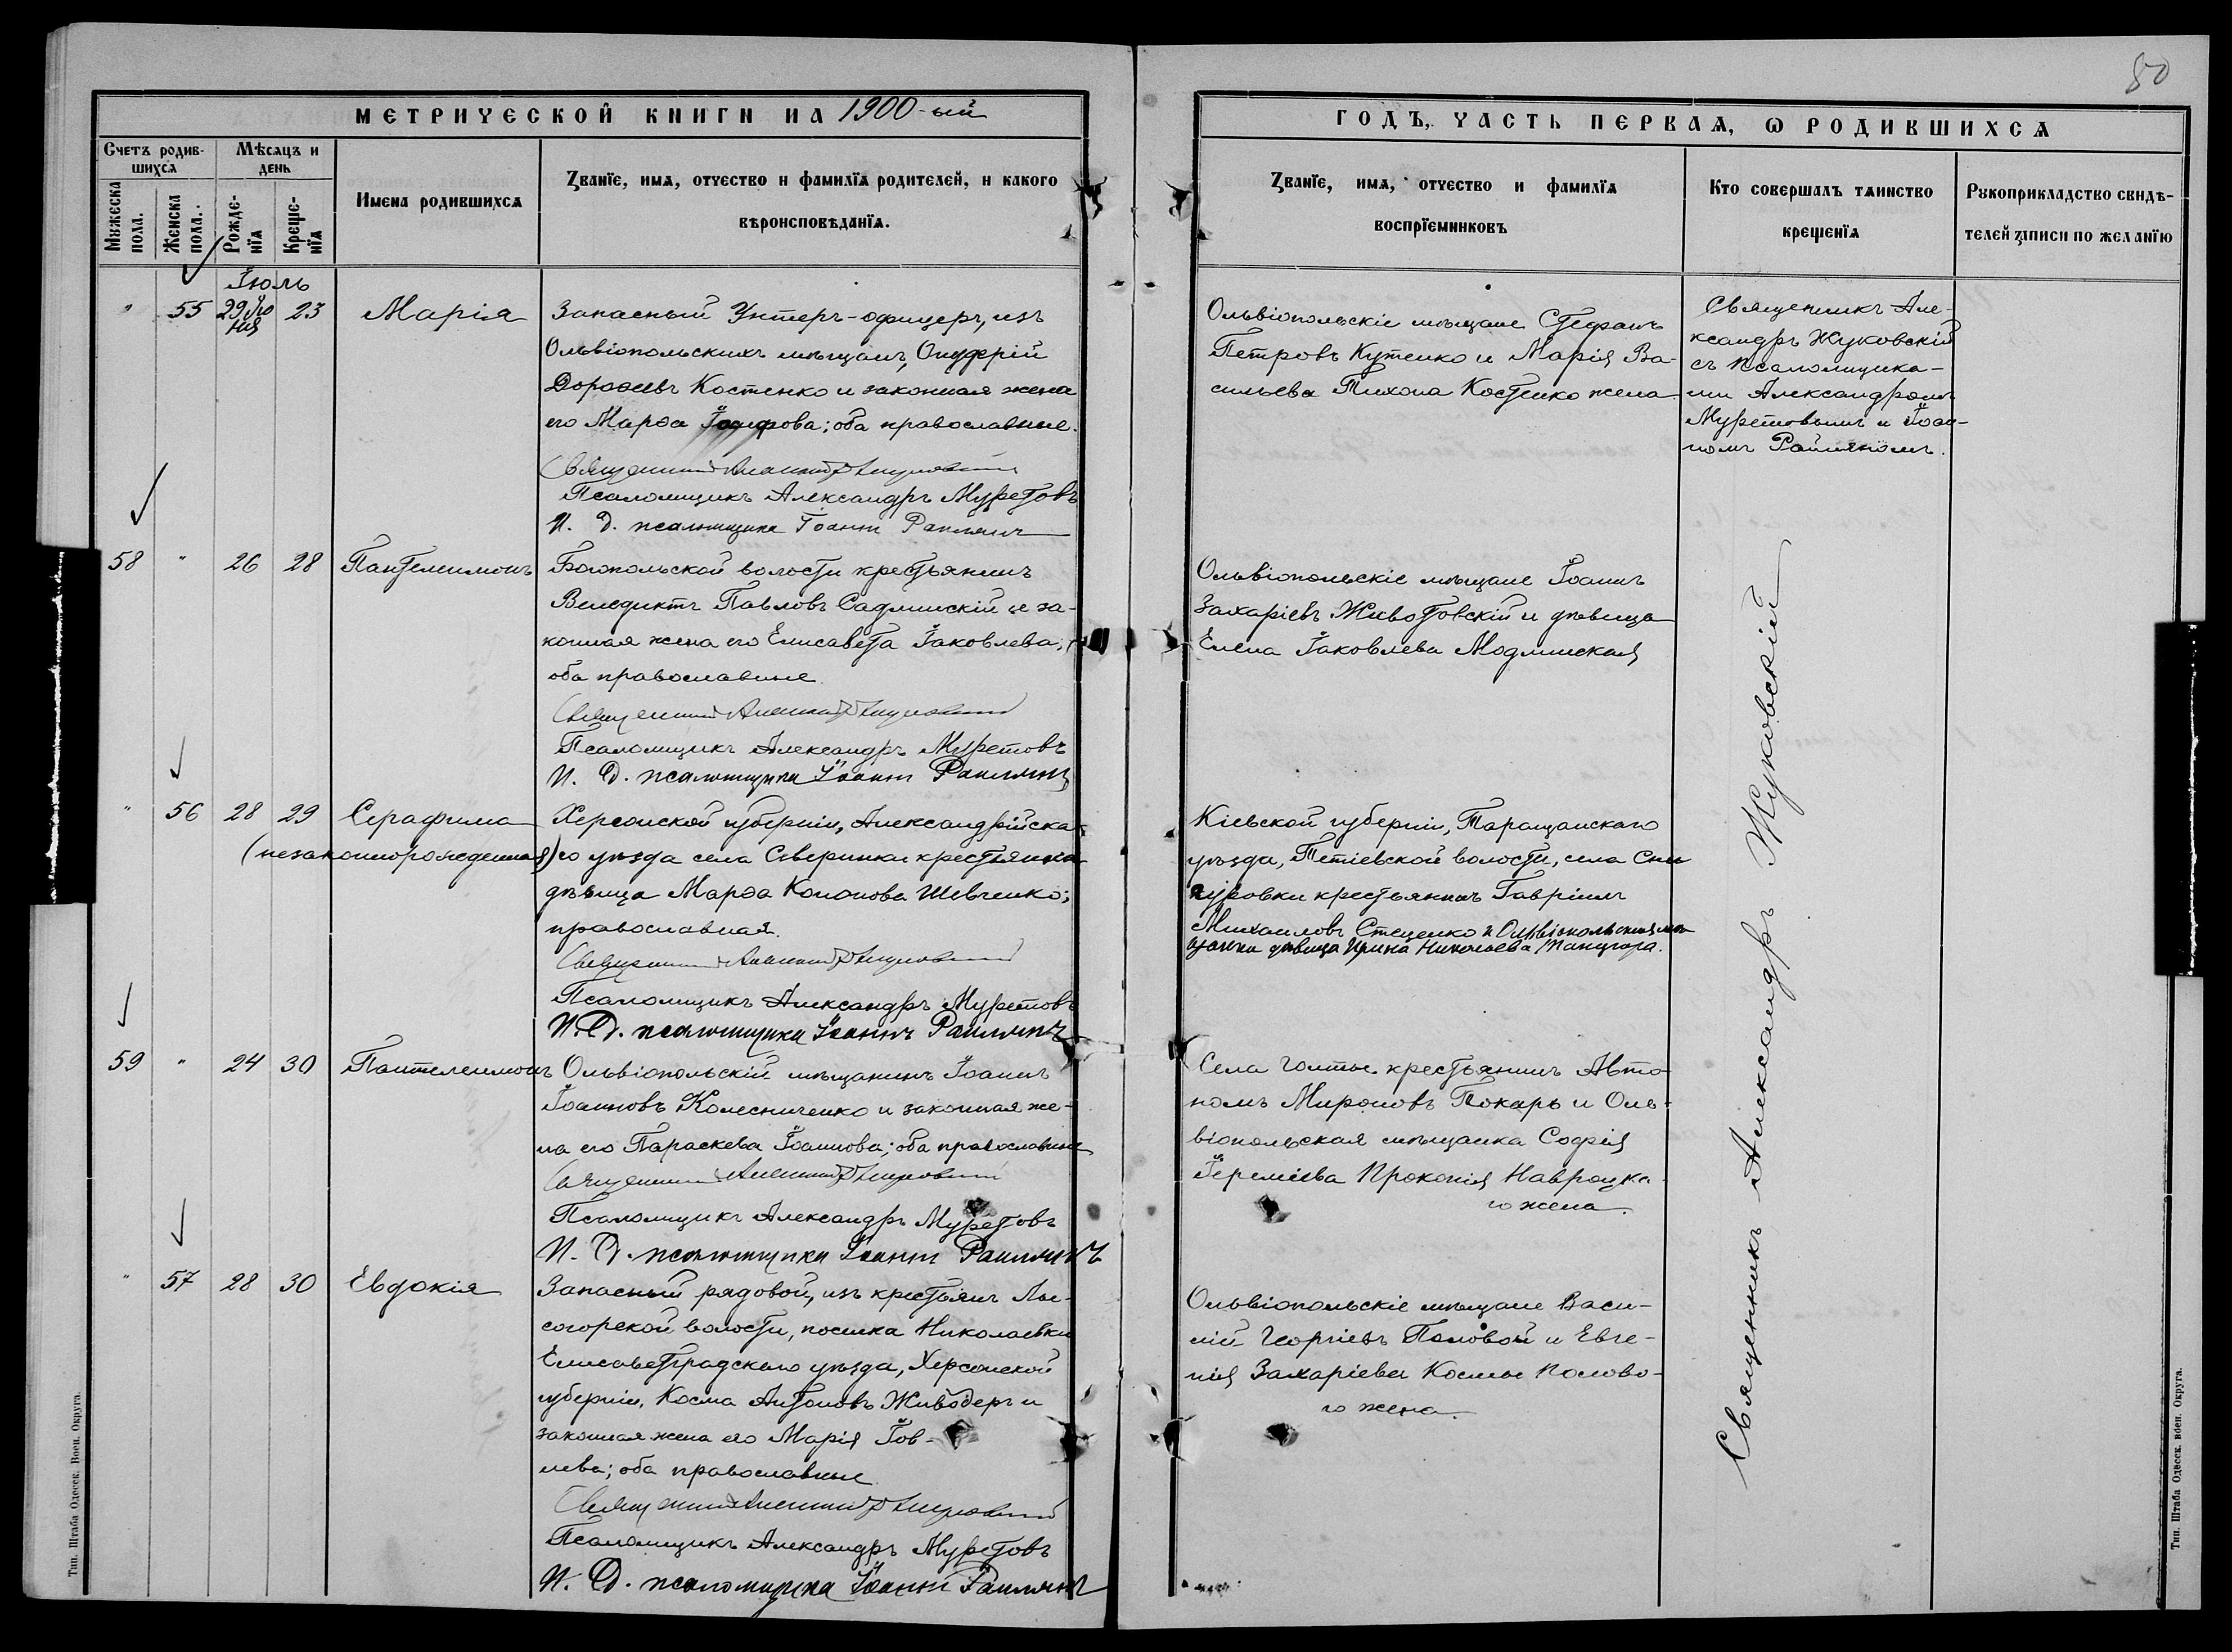 80
МЕТРИЧЕСКОЙ КНИГИ НА 1900-ый
ГОДЪ, ЧАСТЬ ПЕРВАЯ, Ѡ РОДИВШИХСЯ
Счетъ родив-
шихся
Мѣсяцъ и
день
Мужеска
пола.
Женска
пола.
Рожде-
нїя
Креще-
нїя
Имена родившихся
Званїе, имя, отчество и фамилїя родителей, и какого
вѣроисповѣданїя.
Званїе, имя, отчество и фамилїя
воспрїемниковъ
Кто совершалъ таинство
крещенїя
Рукоприкладство свидѣ-
телей записи по желанїю
Іюль
" 55 29 Ію
ня 23 Марія
Запасный Унтеръ-офицеръ, изъ
Ольвіопольскихъ мѣщанъ,
Дороѳеевъ Костенко и законная жена
его Марѳа ; оба православные.
Священникъ Александръ Жуковскій
Псаломщикъ Александръ Муретовъ
И. Д. псаломщика Іоаннъ
Ольвіопольскіе мѣщане Стефанъ
Петровъ Кутенко и Марія Ва-
сильева Тихона Костенко жена
Священникъ Але-
ксандръ Жуковскій
съ псаломщика-
ми Александромъ
Муретовымъ и Іоан-
номъ
58 " 26 28 Пантелеимонъ
Богопольской волости крестьянинъ
Венедиктъ Павловъ Садлинскій и за-
конная жена его Елисавета Іаковлева,
оба православные.
Священникъ Александръ Жуковскій
Псаломщикъ Александръ Муретовъ
И. Д. псаломщика Іоаннъ
Ольвіопольскіе мѣщане Іоаннъ
Захаріевъ Животовскій и дѣвица
Елена Іаковлева Модлинская
" 56 28 29 Серафима
(незаконнорожденная)
Херсонской губерніи, Александрійска-
го уѣзда села Северинки крестьянка
дѣвица Марѳа Кононова Шевченко;
православная.
Священникъ Александръ Жуковскій
Псаломщикъ Александръ Муретовъ
И. Д. псаломщика Іоаннъ
Кіевской губерніи, Таращанскаго
уѣзда, Тетіевской волости, села
крестьянинъ Гавріилъ
Михаиловъ Стеценко и Ольвіопольская мѣ-
щанка дѣвица Ирина Николаева
59 " 24 30 Пантелеимонъ
Ольвіопольскій мѣщанинъ Іоаннъ
Іоанновъ Колесниченко и законная же-
на его Параскева Іоаннова; оба православные
Священникъ Александръ Жуковскій
Псаломщикъ Александръ Муретовъ
И. Д. псаломщика Іоаннъ
Села Голты крестьянинъ Авто-
номъ Мироновъ Токарь и Оль-
віопольская мѣщанка Софія
Іереміева Прокопія Навроцка-
го жена.
" 57 28 30 Евдокія
Запасный рядовой, изъ крестьянъ Лы-
согорской волости, поселка Николаевки
Елисаветградскаго уѣзда, Херсонской
губерніи, Косма Антоновъ Живодеръ и
законная жена его Марія Іов-
лева; оба православные.
Священникъ Александръ Жуковскій
Псаломщикъ Александръ Муретовъ
И. Д. псаломщика Іоаннъ
Ольвіопольскіе мѣщане Васи-
лій Георгіевъ Половой и Евге-
нія Захаріева Космы Полово-
го жена.
Священникъ Александръ Жуковскій
Тип. Штаба Одесск. Воен. Округа.
Тип. Штаба Одесск. воен. Округа.